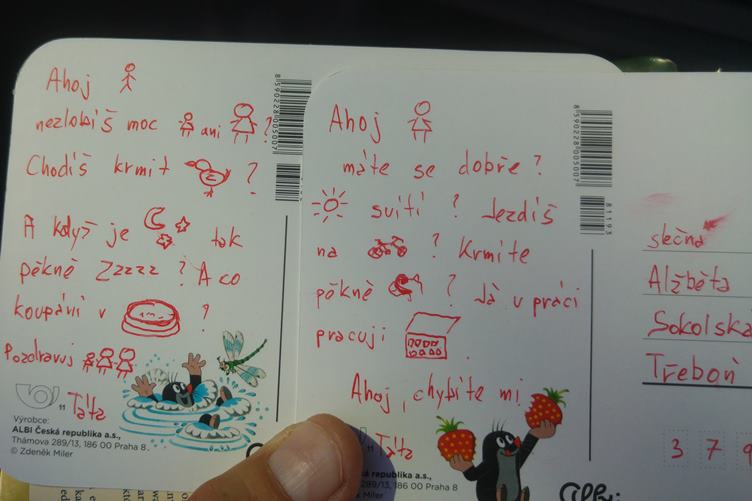 Ahoj
nezlobíš moc ani ?
Chodíš krmit ?
A když je tak
pěkně Zzzzz ? A co
koupání v ?
Pozdravuj
11 Táta
Výrobce:
ALBI Česká republika a.s.,
Thámova 289/13, 186 00 Praha 8
© Zdeněk Miler
8590228005007
Ahoj
máte se dobře?
svítí ? Jezdíš
na ? Krmíte
pěkně ? Já v práci
pracuji .
Ahoj, chybíte mi
11 Táta
á republika a.s.,
289/13, 186 00 Praha 8
k Miler
8590228005007
81193
slečna
Alžběta
Sokolská
Třeboň
3 7 9